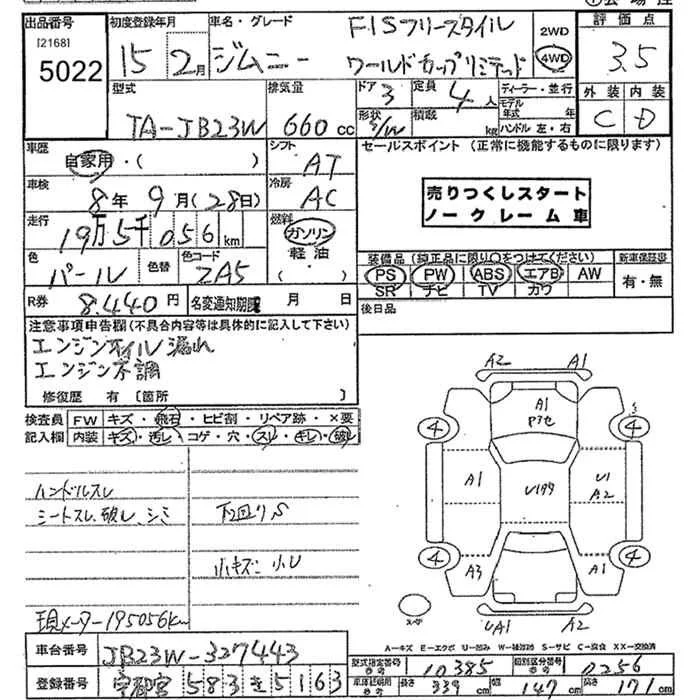 出品番号 初度登録年月 車名・グレード FISフリースタイル 2WD 評価点
[2168] 5022 15 2月 ジムニー ワールドカップリミテッド 4WD 3.5
型式 排気量 ドア 3 定員 4人 ディーラー・並行 外装 内装
TA-JB23W 660cc 形状 S/W 積載 kg モデル年式 年 ハンドル 左・右 C D
車歴 自家用・( ) シフト AT セールスポイント (正常に機能するものに限ります)
車検 8年9月(28日) 冷房 AC
売りつくしスタート
ノークレーム車
走行 19万5千056km 燃料 ガソリン 軽油 ( )
色 パール 色替 色コード ZA5
装備品(純正品に限り○をつけてください) 新車保証書
PS PW ABS エアB AW 有・無
SR ナビ TV カワ
R券 8,440円 名変通知期限 月 日 後日品
注意事項申告欄(不具合内容等は具体的に記入して下さい)
エンジンオイル漏れ
エンジン不調
修復歴 有 [箇所 ]
検査員 FW キズ・飛石・ヒビ割・リペア跡・×要
記入欄 内装 キズ・汚レ・コゲ・穴・スレ・キレ・破レ
ハンドルスレ
シートスレ、破レ、シミ 下回りS
小キズ 小U
現メーター195056km
A2 A1
A1
4 4
A1 U1
A2
4 4
A3 A1
UA1 A2
A-キズ E-エクボ U-凹み W-補修跡 S-サビ C-腐食 XX-交換済
車台番号 JB23W-327443 型式指定番号 10385 類別区分番号 0256
登録番号 宇都宮 583 き 5163 長さ 339 幅 147 高さ 171cm